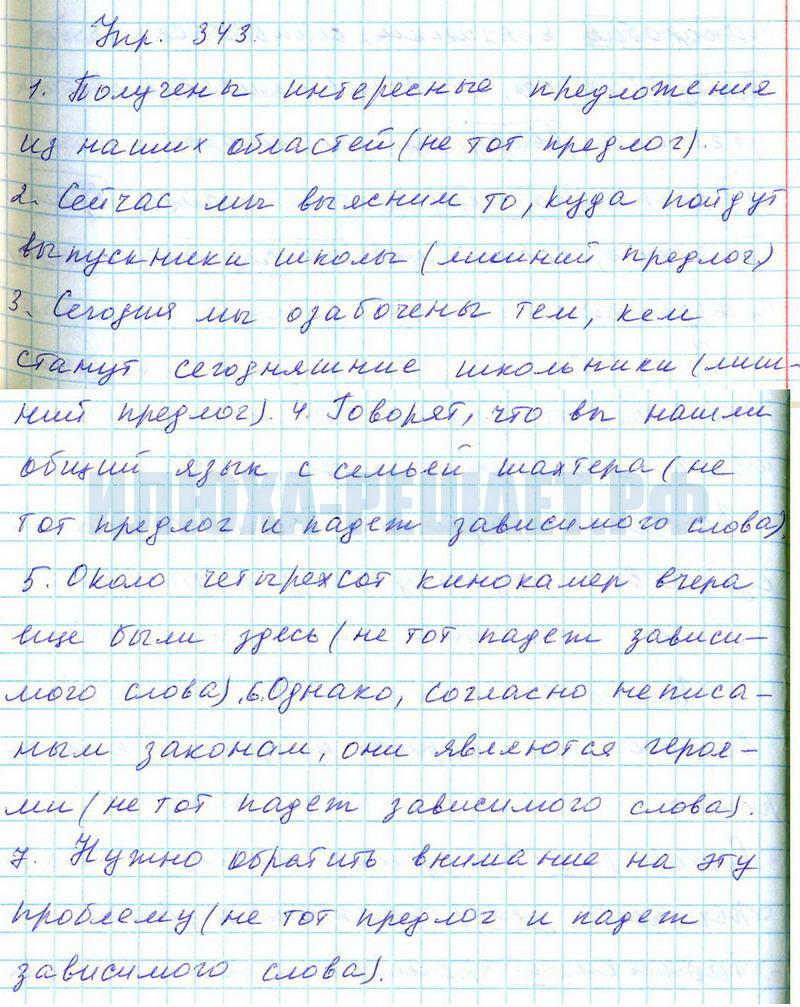 Упр. 343.
1. Получены интересные предложения
из наших областей (не тот предлог).
2. Сейчас мы выясним то, куда пойдут
выпускники школы (лишний предлог)
3. Сегодня мы озабочены тем, кем
станут сегодняшние школьники (лиш-
ний предлог). 4. Говорят, что вы нашли
общий язык с семьей шахтера (не
ИЛЮХА-РЕШАЕТ.РФ
тот предлог и падеж зависимого слова).
5. Около четырехсот кинокамер вчера
еще были здесь (не тот падеж зависи-
мого слова). 6. Однако, согласно неписа-
ным законам, они являются героя-
ми (не тот падеж зависимого слова).
7. Нужно обратить внимание на эту
проблему (не тот предлог и падеж
зависимого слова).